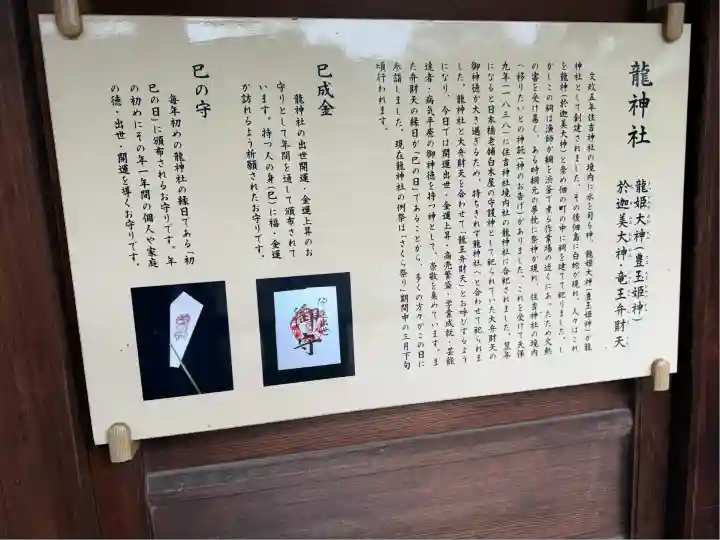 龍神社
龍姫大神(豊玉姫神)
於迦美大神・竜王弁財天
文政五年住吉神社の境内に水を司る神、龍姫大神(豊玉姫神)が龍
神社として創建されました。その後佃島に白蛇が現れ、人々はこれ
を龍神(於迦美大神)と崇め佃の町の中に祠を建て祀りました。し
かしこの祠は漁師が網を渋釜で煮る作業場の近くにあったため火熱
の害を受け易く、ある時網元の夢枕に祭神が現れ、住吉神社の境内
へ移りたいとの神託(神のお告げ)がありました。これを受けて天保
九年(一八三八)に住吉神社境内社の龍神社に合祀されました。翌年
になると日本橋老舗白木屋の守護神として祀られていた大弁財天の
御神徳が大き過ぎるため、持ちきれず龍神社へと合わせて祀られま
した。龍神社と大弁財天を合わせて「龍王弁財天」とお呼びするよう
になり、今日では開運出世・金運上昇・商売繁盛・学業成就・芸能
達者・病気平癒の御神徳を持つ神として、崇敬を集めています。ま
た弁財天の縁日が「巳の日」であることから、多くの方々がこの日に
参詣しました。現在龍神社の例祭は「さくら祭り」期間中の三月下旬
頃行われます。
巳成金
龍神社の出世開運・金運上昇のお
守りとして年間を通して頒布されて
います。持つ人の身(巳)に福・金運
が訪れるよう祈願されたお守りです。
巳の守
毎年初めの龍神社の縁日である「初
巳の日」に頒布されるお守りです。年
の初めにその年一年間の個人や家庭
の徳・出世・開運を導くお守りです。
御守